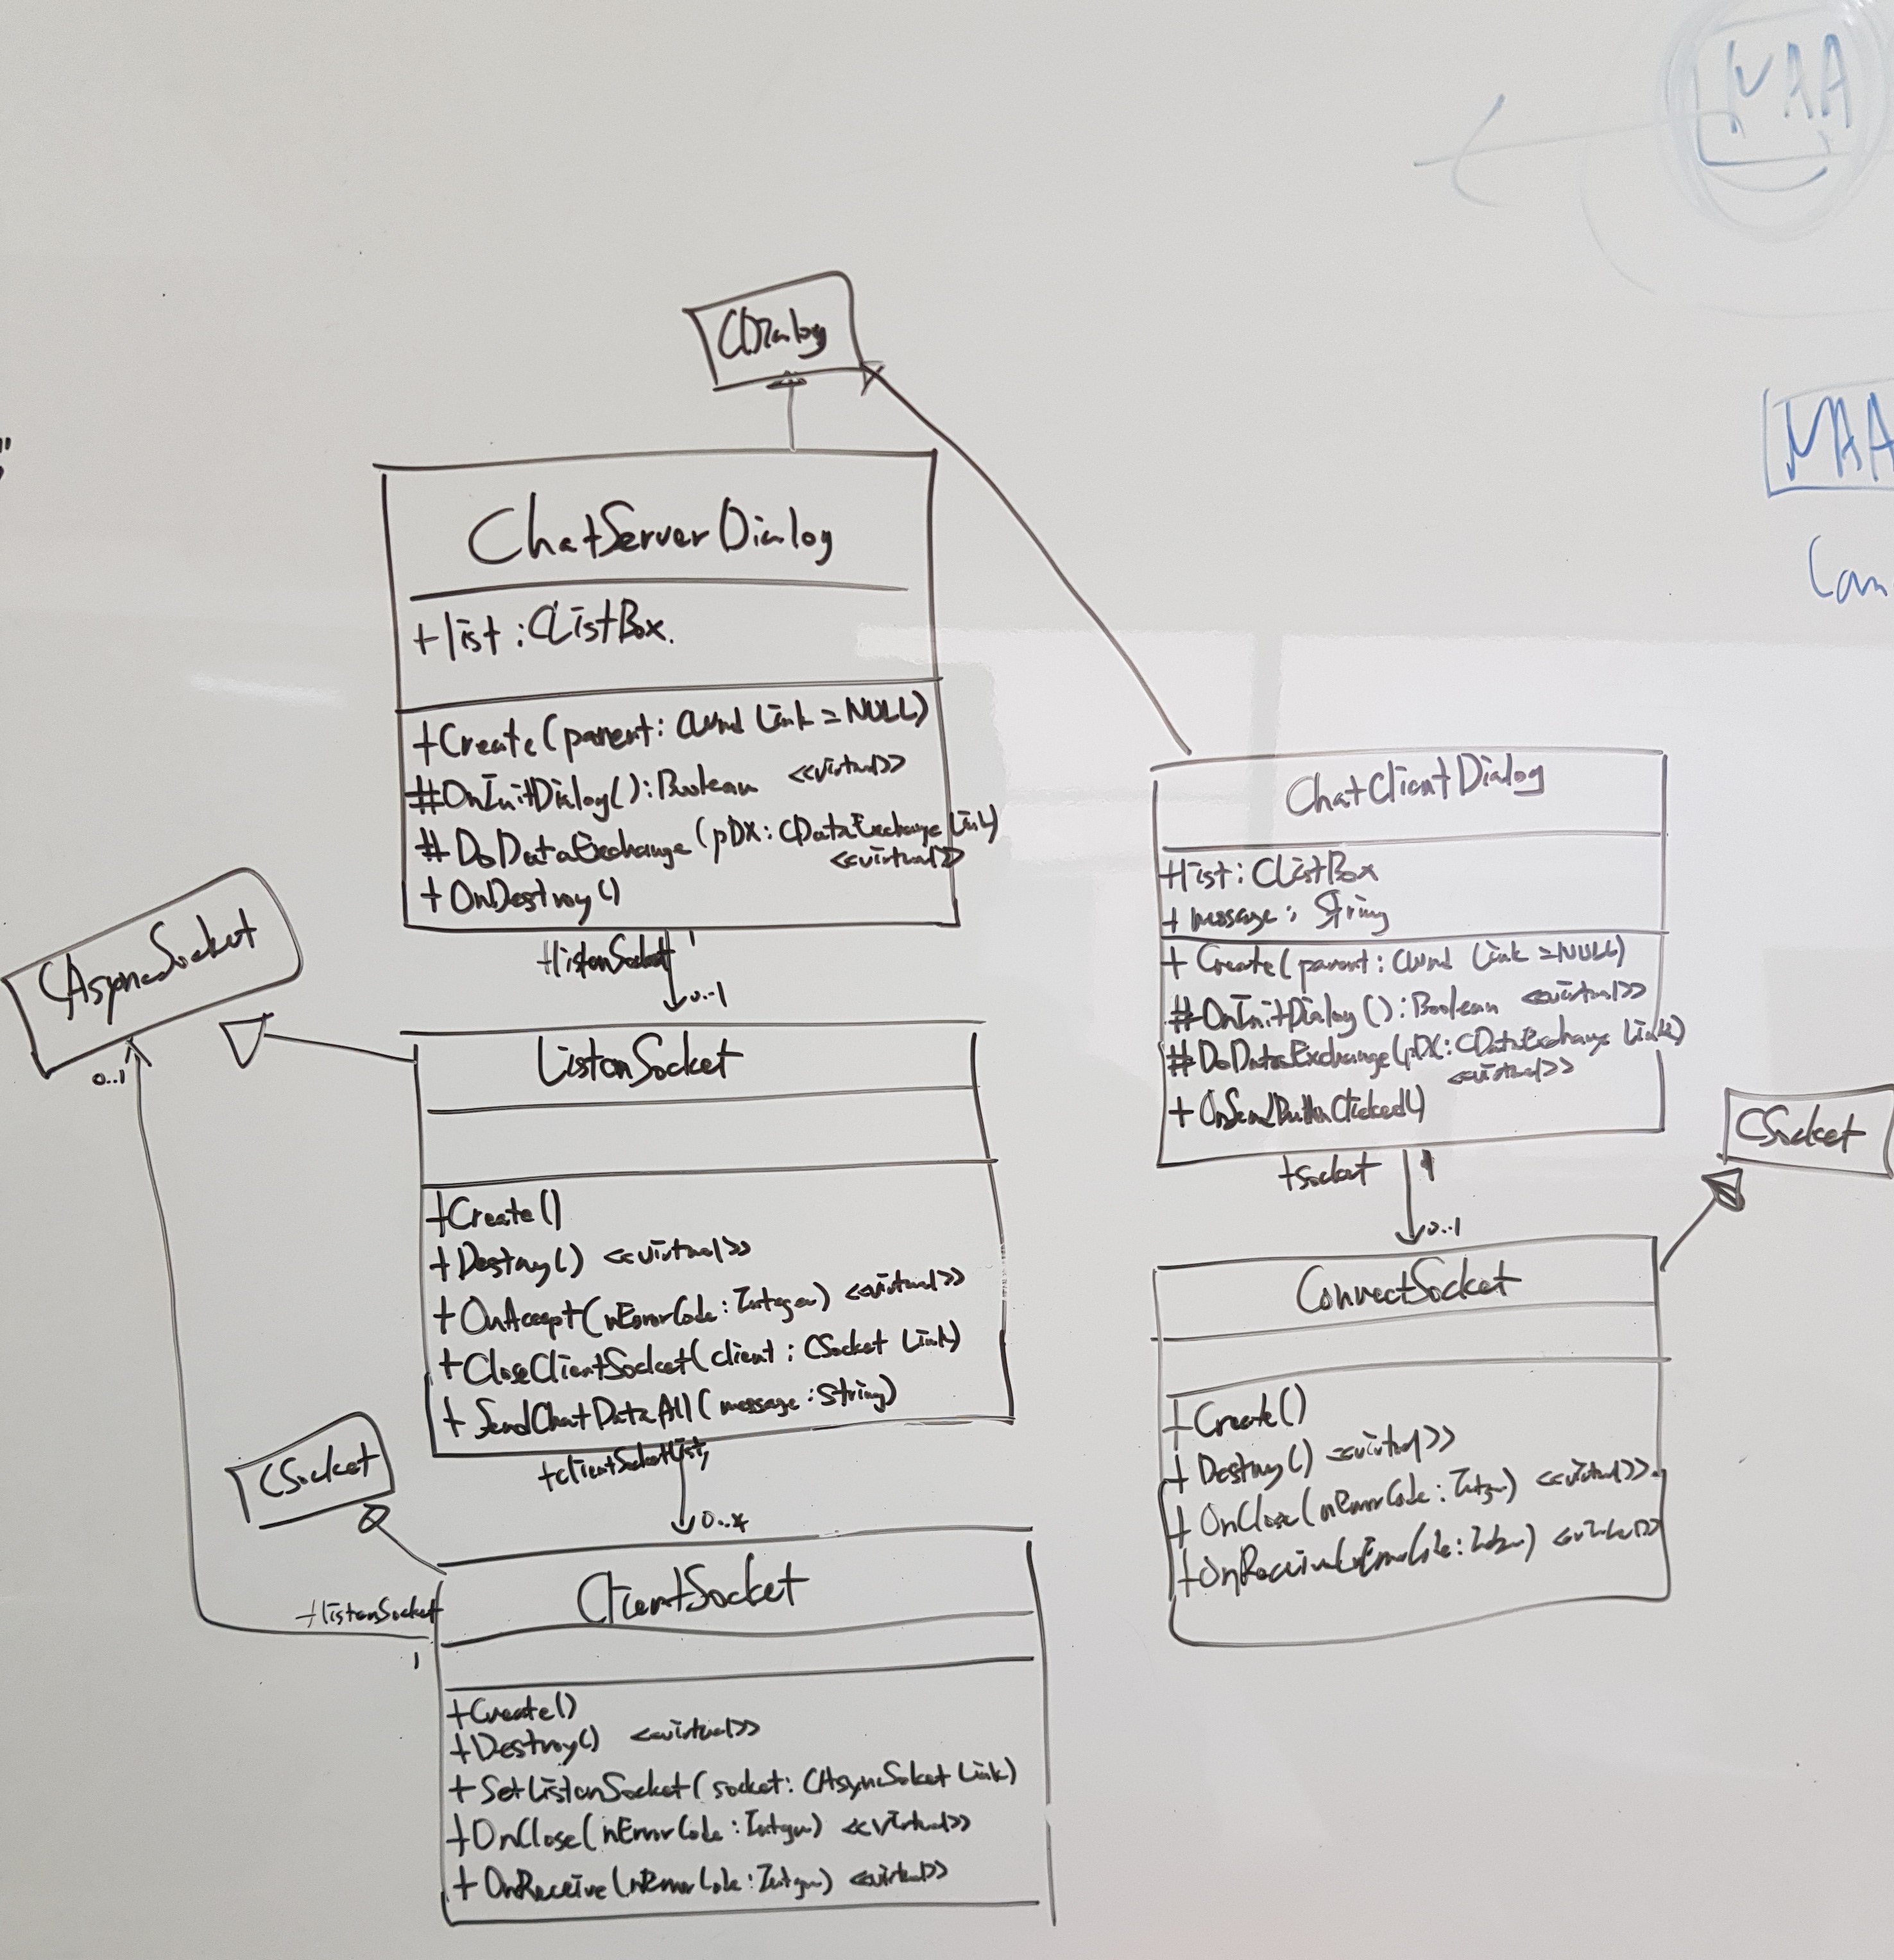 CDialog
ChatServerDialog
+list : CListBox.
+Create(parent : CWnd Link = NULL)
#OnInitDialog() : Boolean <<virtual>>
#DoDataExchange(pDX : CDataExchange Link)
<<virtual>>
+OnDestroy()
+listonSocket 1
0..1
CAsyncSocket
0..1
ListonSocket
+Create()
+Destroy() <<virtual>>
+OnAccept(nErrorCode : Integer) <<virtual>>
+CloseClientSocket(client : CSocket Link)
+SendChatDataAll(message : String)
+clientSocketList
0..*
CSocket
+listonSocket
1
ClientSocket
+Create()
+Destroy() <<virtual>>
+SetListonSocket(socket : CAsyncSoket Link)
+OnClose(nErrorCode : Integer) <<virtual>>
+OnReceive(nErrorCode : Integer) <<virtual>>
ChatClientDialog
+list : CListBox
+message : String
+Create(parent : CWnd Link = NULL)
#OnInitDialog() : Boolean <<virtual>>
#DoDataExchange(pDX : CDataExchange Link)
<<virtual>>
+OnSendButtonClicked()
+socket 1
0..1
CSocket
ConnectSocket
+Create()
+Destroy() <<virtual>>
+OnClose(nErrorCode : Integer) <<virtual>>
+OnReceive(nErrorCode : Integer) <<virtual>>